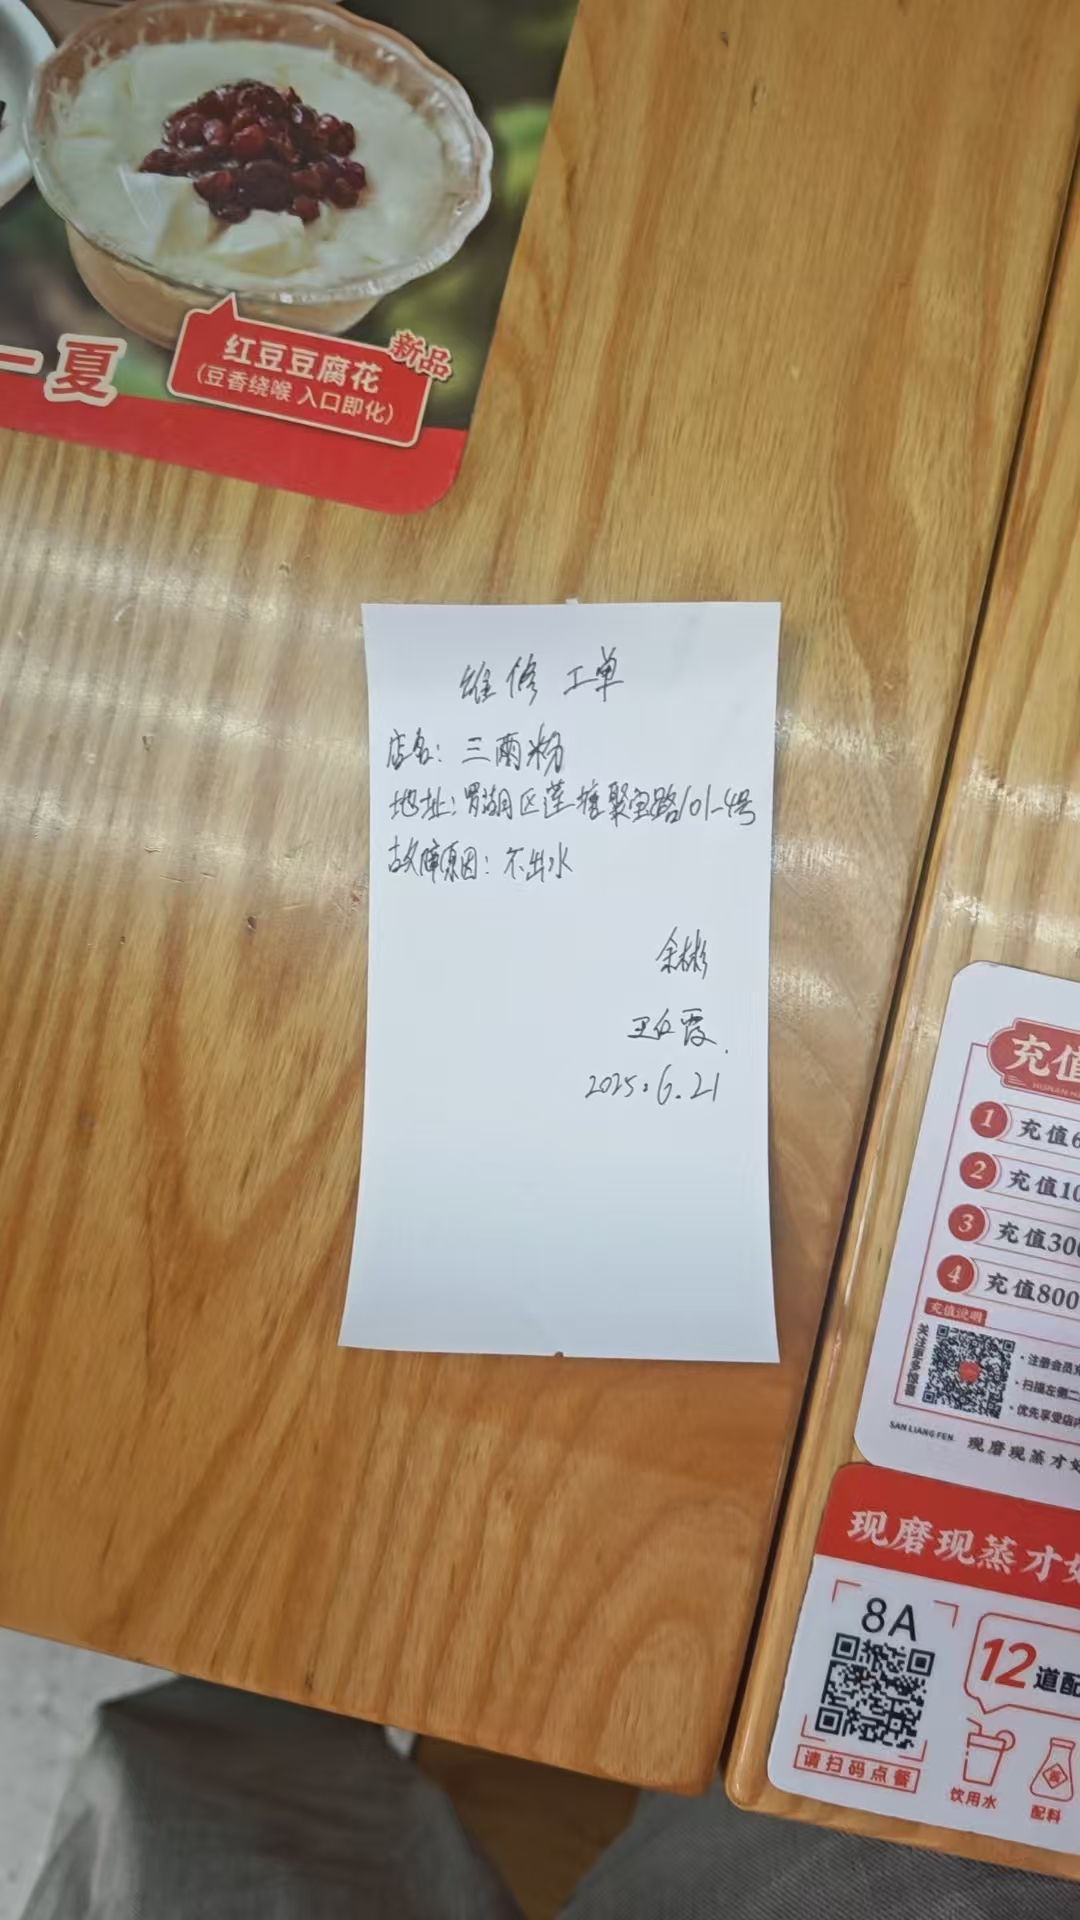 一夏
新品
红豆豆腐花
(豆香绕喉 入口即化)
维修工单
店名: 三两粉
地址: 罗湖区莲塘聚宝路101-4号
故障原因: 不出水
余彬
2025.6.21
充值
1 充值6
2 充值10
3 充值300
4 充值800
充值说明
关注更多惊喜
·注册会员充
·扫描左侧二
·优先享受店内
SAN LIANG FEN
现磨现蒸才好
现磨现蒸才好
8A
请扫码点餐
12道配
饮用水
配料